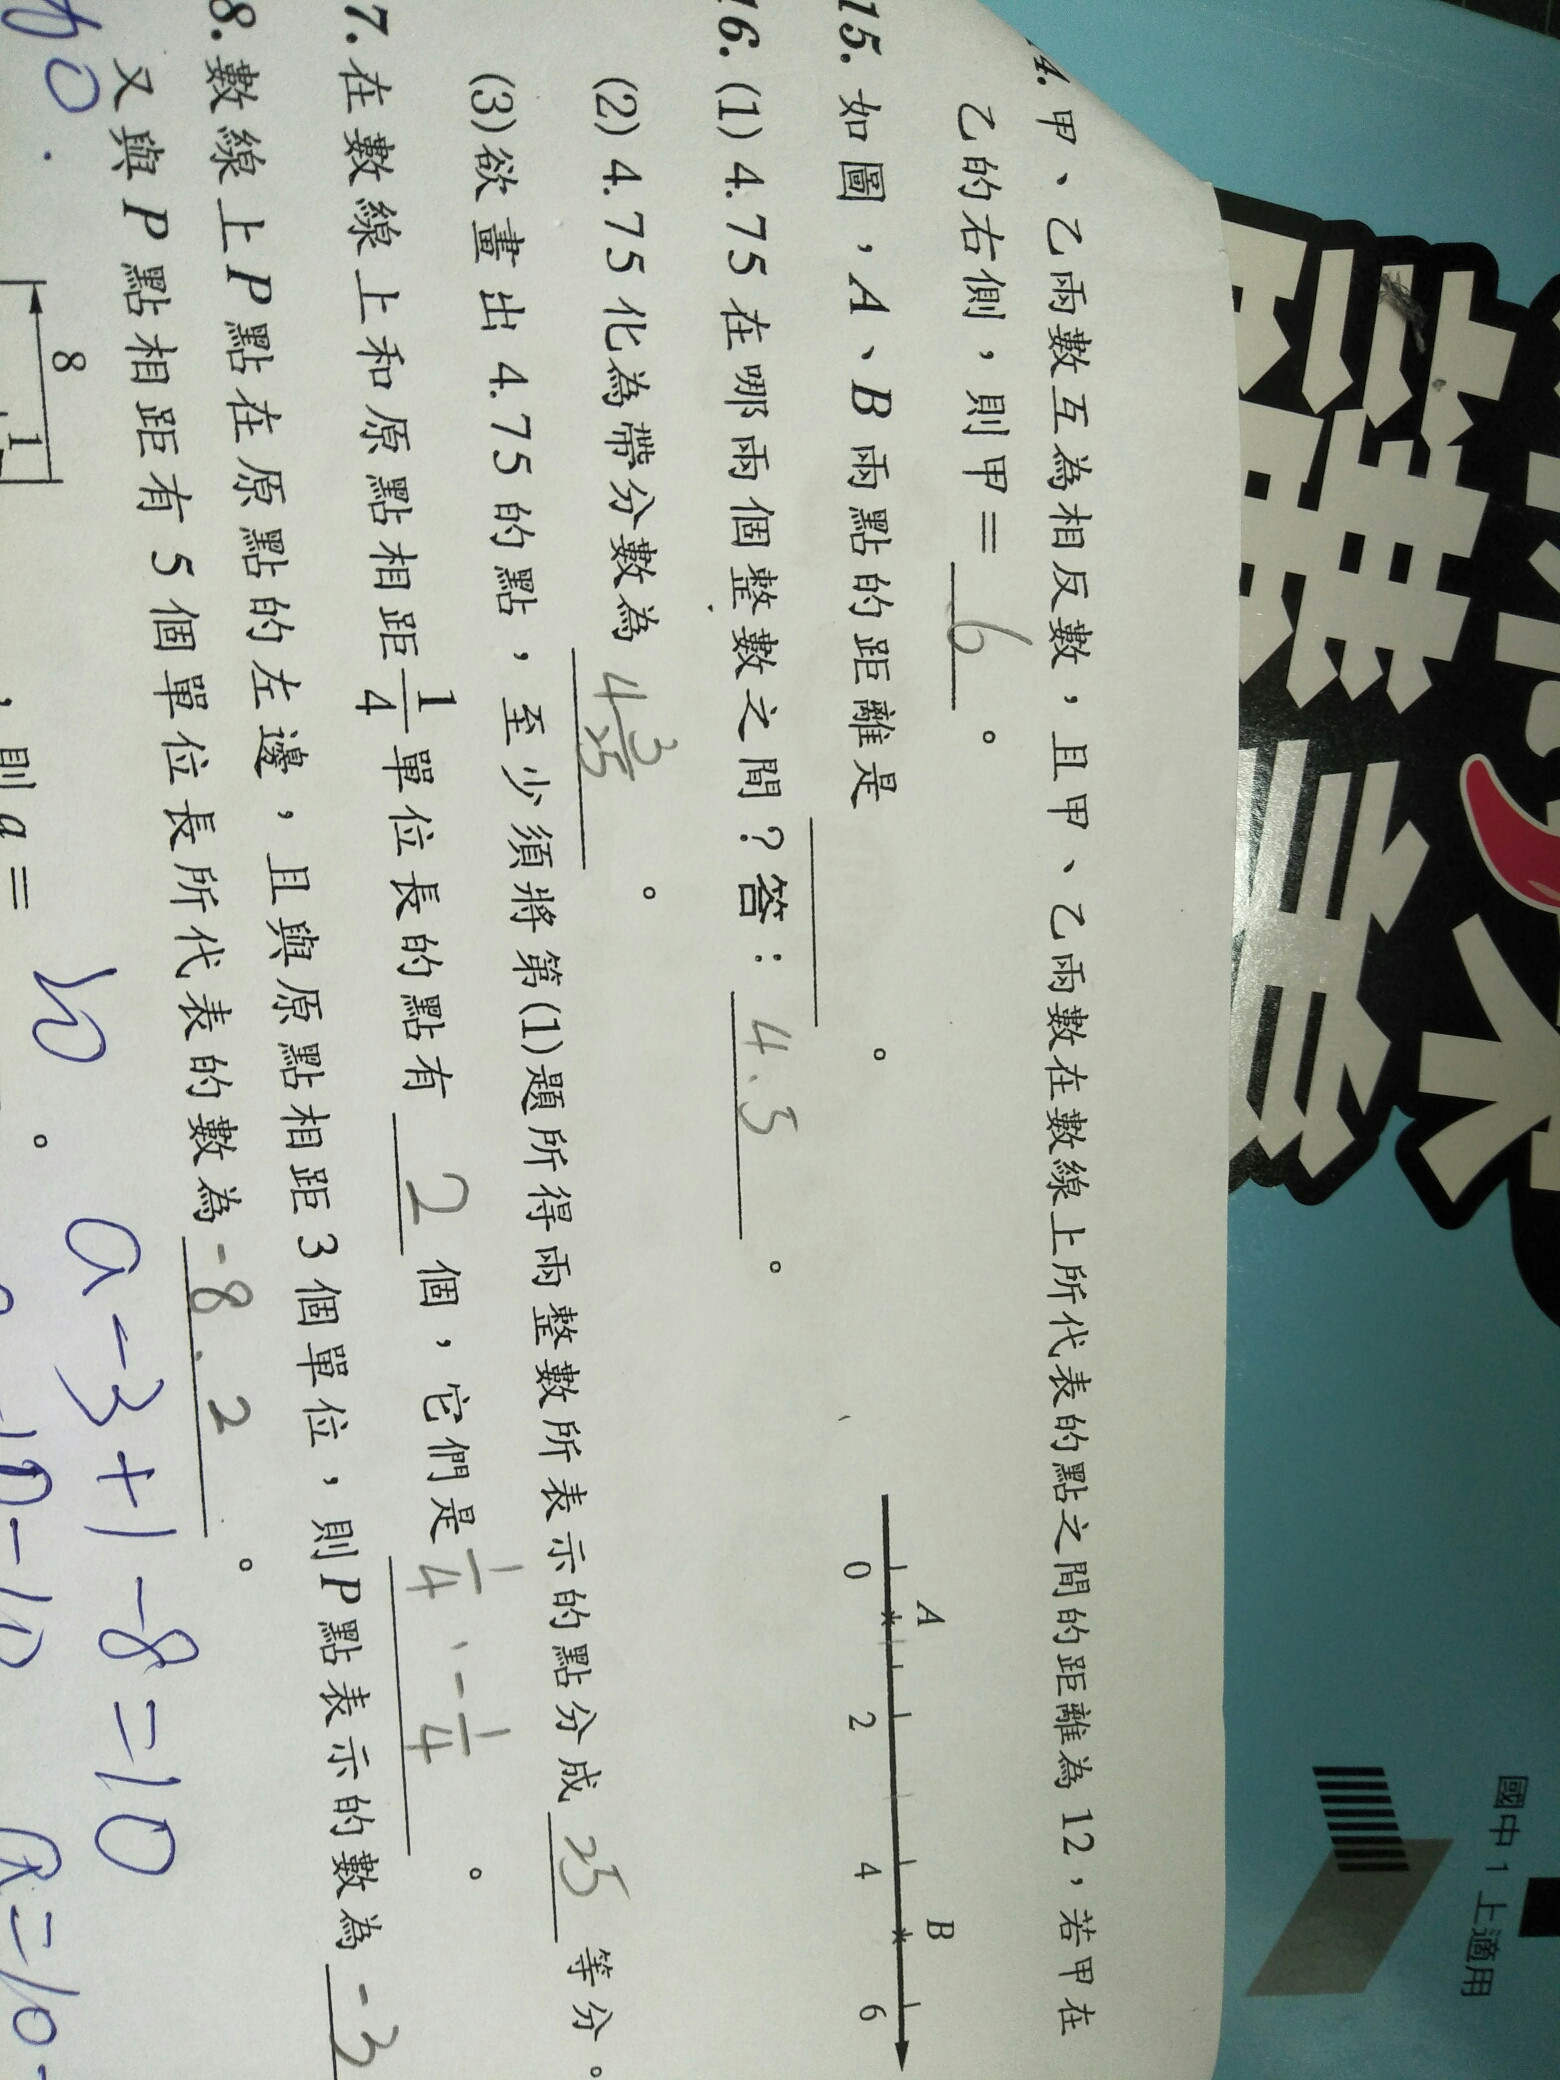 4. 甲、乙兩數互為相反數，且甲、乙兩數在數線上所代表的點之間的距離為12，若甲在
乙的右側，則甲＝ 6 。
15. 如圖，A、B兩點的距離是 。
A B
0 2 4 6
16. (1) 4.75在哪兩個整數之間？答： 4.5 。
(2) 4.75化為帶分數為 4 3/25 。
(3) 欲畫出4.75的點，至少須將第(1)題所得兩整數所表示的點分成 25 等分。
7. 在數線上和原點相距 1/4 單位長的點有 2 個，它們是 1/4、-1/4 。
8. 數線上P點在原點的左邊，且與原點相距3個單位，則P點表示的數為 -3
又與P點相距有5個單位長所代表的數為 -8、2 。
8
1
，則a＝ 。
a-3+1-8=10
國中1上適用